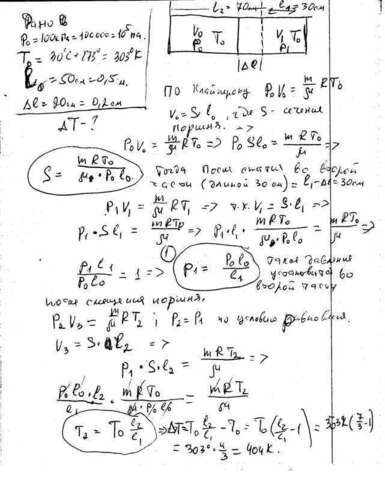 Дано:
P₀=100кПа=100000=10⁵Па.
T₀=30°C+273°=303°K
L₀=50см=0,5м.
Δl=20см=0,2см
ΔT-?
l₂=70см l₁=30см
V₀ T₀ P₀ V₁ T₀ P₁
|Δl|
По Клайперону P₀V₀=m/μ RT₀
V₀=Sl₀, где S- сечения
поршня. =>
P₀V₀=m/μ RT₀=>P₀Sl₀=mRT₀/μ=>
S=mRT₀/μ·P₀l₀. Тогда после сжатия во второй
части (длиной 30см)=l₁-Δl=30см
P₁V₁=m/μ RT₁ => т.к. V₁=S·l₁ =>
P₁·Sl₁=mRT₀/μ=>P₁·l₁·mRT₀/μ·P₀l₀=mRT₀/μ=>
P₁l₁/P₀l₀=1=> ① P₁=P₀l₀/l₁ такое давление
установится во
второй части
после смещения поршня.
P₂V₃=m/μ RT₂; P₂=P₁ по условию равновения.
V₃=S·l₂ =>
P₁·Sl₂=mRT₂/μ =>
P₀l₀·l₂/l₁·mRT₀/μ·P₀l₀=mRT₂/μ
T₂=T₀ l₂/l₁ =>ΔT=T₀ l₂/l₁-T₀=T₀(l₂/l₁-1)=303K(7/3-1)
=303°·4/3=404K.